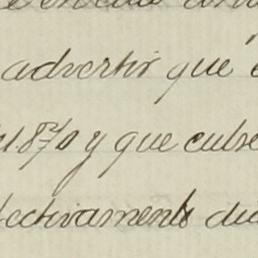 advertir que
1870 y que cubre
fectivamente di